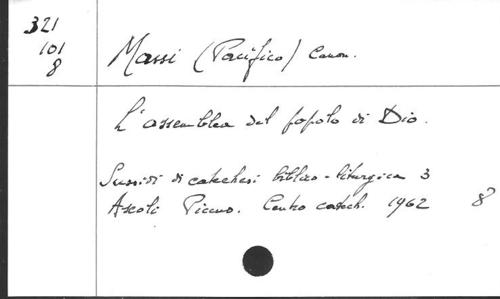 321
101
8
Massi (Pacifico) Canon.
L'assemblea del popolo di Dio.
Sussidi di catechesi biblico-liturgica 3
Ascoli Piceno. Centro catech. 1962 8